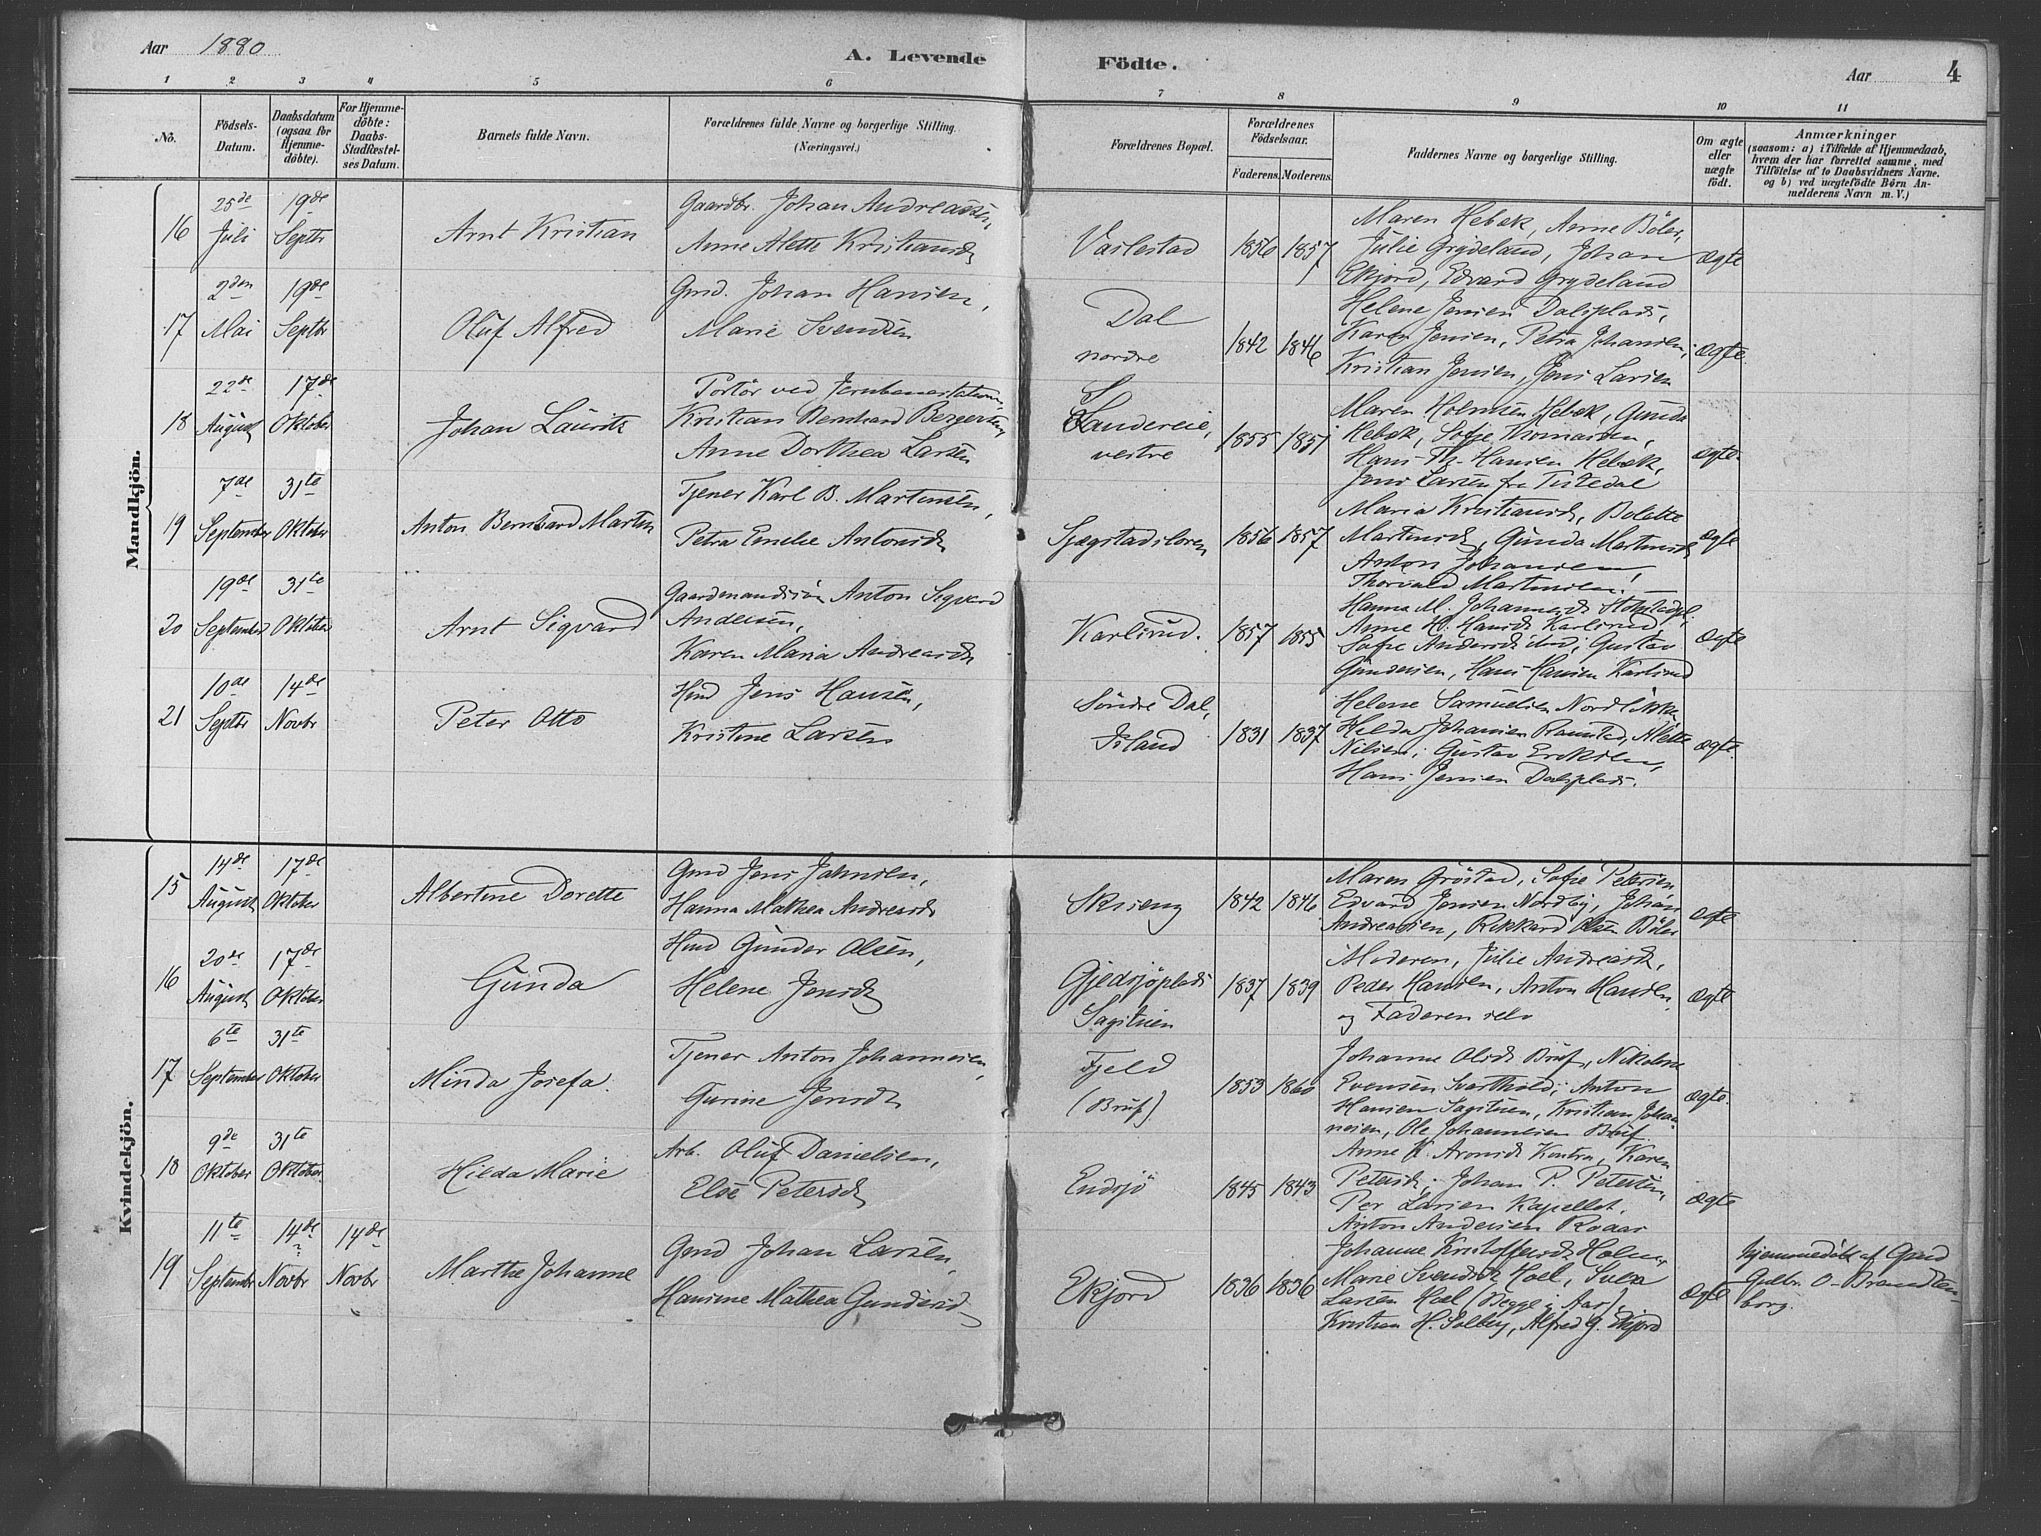 Aar 1880
A. Levende Födte.
Aar 4
1 2 3 4 5 6 7 8 9 10 11
No.
Födsels-Datum.
Daabsdatum (ogsaa for Hjemme-döbte).
For Hjemme-döbte: Daabs-Stadfestel-ses Datum.
Barnets fulde Navn.
Forældrenes fulde Navne og borgerlige Stilling. (Næringsvei.)
Forældrenes Bopæl.
Forældrenes Födselsaar.
Faderens. Moderens.
Faddernes Navne og borgerlige Stilling.
Om ægte eller uægte födt.
Anmærkninger
(saasom: a) i Tilfælde af Hjemmedaab,
hvem der har forrettet samme, med
Tilföielse af to Daabsvidners Navne.
og b) ved uægtefödte Börn An-
melderens Navn m. V.)
Mandkjön.
16 25de Juli 19de Septbr Arnt Kristian
Gaardbr. Johan Andreassen,
Anne Alette Kristiansd
Vaslestad 1856 1857
Maren Hebæk, Anne Böler,
Julie Grydeland, Johan
Ekjord, Edvard Grydeland
ægte
17 2den Mai 19de Septbr Oluf Alfred
Gmd. Johan Hansen,
Marie Svendsen
Dal
nordre
1842 1846
Helene Jensen Dalsplads,
Karen Jensen, Petra Johansen,
Kristian Jensen, Jens Larsen
ægte.
18 22de August 17de Oktober Johan Lauritz
Portör ved Jernbanestationen
Kristian Bernhard Bergersen
Anne Dorthea Larsen
Sandereie,
vestre
1855 1851
Maren Holmsen Hebæk, Gunda
Hebæk, Sofie Thomassen,
Hans Hansen Hebæk,
Jens Larsen fra Tistedal
ægte.
19 7de September 31te Oktober Anton Bernhard Martin
Tjener Karl B. Martinsen,
Petra Emelie Antonsd
1856 1857
Maria Kristiansd, Bolette
Martinsd, Gunda Martinsd,
Anton Johansen,
Thorvald Martinsen.
ægte
20 19de September 31te Oktober Arnt Sigvard
Gaardmandssön Anton Sigvard
Andersen,
Karen Maria Andreasd
Karlsrud. 1857 1855
Hanna M. Johannesd
Anne H. Hansd Karlsrud,
Sofie Andersd ibid; Gustav
Gundersen, Hans Hansen Karlsrud
ægte
21 10de Septbr 14de Novbr Peter Otto
Hmd Jens Hansen,
Kristine Larsen
Söndre Dal,
Island
1831 1837
Helene Samuelsen
Helda Johansen Ramstad, Alette
Nilsen, Gustav Eriksen,
Hans Jensen Dalsplads.
ægte.
Kvindekjön.
15 14de August 17de Oktober Albertine Dorette
Gmd Jens Jahnsen,
Hanna Mathea Andreasd
Skrieng 1842 1846
Maren Gröstad, Sofie Petersen,
Edvard Jensen Nordby, Johan
Andreassen, Rikkard Olsen Böler
ægte
16 20de August 17de Oktober Gunda
Hmd Gunder Olsen,
Helene Jensd
Gjedsjöplads
Sagstuen
1837 1839
Moderen, Julie Andreasd,
Peder Hansen, Anton Hansen,
og Faderen selv
ægte
17 6te September 31te Oktober Minda Josefa.
Tjener Anton Johannesen,
Gurine Jensd
Fjeld
(Bruf)
1853 1860
Johanne Olsd Bruf, Nikoline
Evensen Svartholt, Anton
Hansen Sagstuen, Kristian Johan-
nesen, Ole Johannesen Bruf.
ægte.
18 9de Oktober 31te Oktober Hilda Marie
Arb. Oluf Danielsen,
Else Petersd
Endsjö 1845 1843
Anne K. Aronsd Kontra, Karen
Petersd, Johan P. Petersen,
Per Larsen Kapellet.
Anton Andersen Roaas
ægte
19 11te September 14de Novbr 14de Novbr Marthe Johanne
Gmd Johan Larsen,
Hansine Mathea Gundersd
Ekjord 1836 1836
Johanne Kristoffersd Holm,
Marie Svendsd Hoel, Svea
Larsen Hoel (Begge i Aas),
Kristian H. Solberg, Alfred G. Ekjord
ægte
hjemmedöbt af Gmd
Gulbr. O. Branden-
borg.